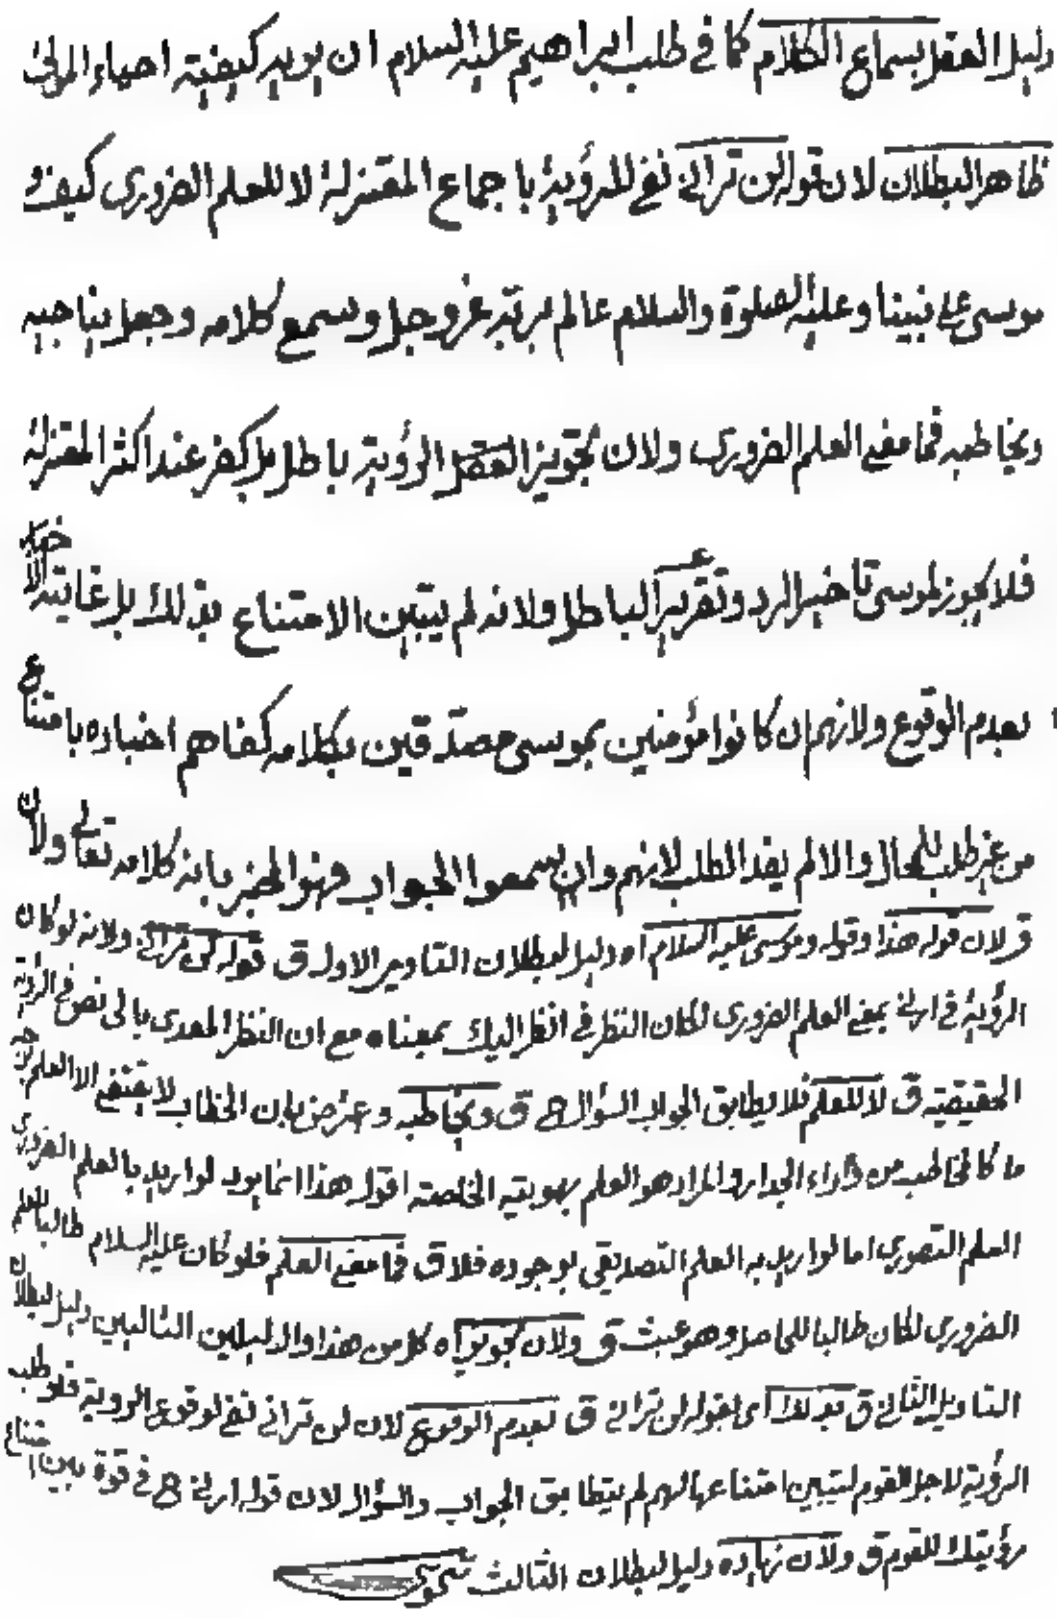 دليل العقل بسماع الكلام كما في طلب ابراهيم عليه السلام ان يريه كيفية احياء الموتى
ظاهر البطلان لان قوله لن تراني نفي للرؤية باجماع المعتزلة لا للعلم الضروري كيف و
موسى على نبينا وعليه الصلوة والسلام عالم بربه عز وجل وسمع كلامه وجعل يناجيه
ويخاطبه فما معنى العلم الضروري ولان تجويز العقل الرؤية باطل بل كفر عند اكثر المعتزلة
فلا يجوز لموسى تاخير الرد وتقرير الباطل ولانه لم يتبين الامتناع بذلك بل غايته الاخبار
بعدم الوقوع ولانهم ان كانوا مؤمنين بموسى مصدقين بكلامه كفاهم اخباره بامتناع
من غير طلب للمحال والا لم يفد الطلب لانهم وان سمعوا الجواب فهو المخبر بانه كلامه تعالى ولان
ق لان قوله هذا وقوله وموسى عليه السلام اه دليل لبطلان التاويل الاول ق قوله لن تراني ولانه لو كان
الرؤية في ارني بمعنى العلم الضروري لكان النظر في انظر اليك بمعناه مع ان النظر المعدى بالى نص في الرؤية
الحقيقية ق لا للعلم فلا يطابق الجواب السؤال ح ق ويخاطبه وعرض بان الخطاب لا يقتضي الا العلم بوجه
ما كالمخاطب من وراء الجدار والمراد هو العلم بهويته الخاصة اقول هذا انما يرد لو اريد بالعلم الضروري
العلم التصوري اما لو اريد به العلم التصديقي بوجوده فلا ق فما معنى العلم فلو كان عليه السلام طالبا للعلم
الضروري لكان طالبا للحاصل وهو عبث ق ولان تجويز اه كل من هذا والدليلين التاليين دليل لبطلان
التاويل الثاني ق بذلك اى بقوله لن تراني ق بعدم الوقوع لان لن تراني نفي لوقوع الروية فلو طلب
الرؤية لاجل القوم ليتبين امتناعها لهم لم يتطابق الجواب والسؤال لان قوله ارني ح في قوة بين امتناع
رؤيتك للقوم ق ولان دليل لبطلان الثالث